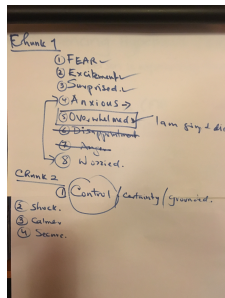 Chunk 1
① FEAR ✓
② Excitement ✓
③ Surprised ✓
④ Anxious →
⑤ Overwhelmed
I am going to die
⑥ Disappointment
⑦ Anger
⑧ Worried.
Chunk 2
① Control / certainty / grounded.
② Shock.
③ Calm
④ Secure.